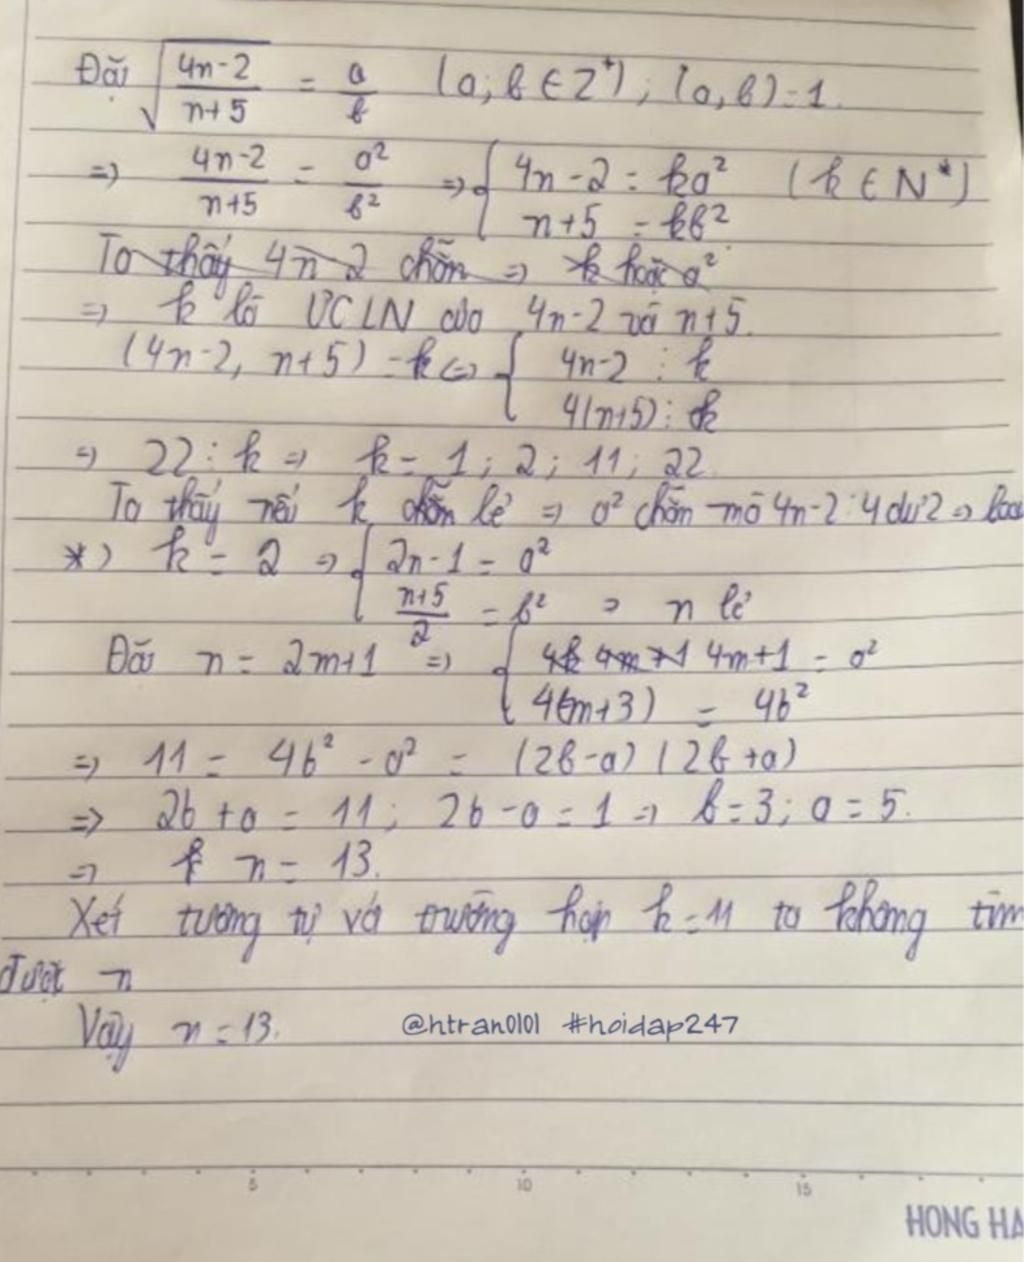 Đặt √(4n-2)/(n+5) = a/b (a; b ∈ Z⁺); (a, b) = 1.
=> (4n-2)/(n+5) = a²/b² => { 4n-2 = ka² (k ∈ N*)
n+5 = kb²
Ta thấy 4n-2 chẵn => k hoặc a²
=> k là ƯCLN của 4n-2 và n+5.
(4n-2, n+5) = k <=> { 4n-2 ⋮ k
4(n+5) ⋮ k
=> 22 ⋮ k => k = 1; 2; 11; 22
Ta thấy nếu k chẵn lẻ => a² chẵn mà 4n-2 : 4 dư 2 => loại
*) k = 2 => { 2n-1 = a²
(n+5)/2 = b² => n lẻ
Đặt n = 2m+1 => { 4k 4m+1 4m+1 = a²
4(m+3) = 4b²
=> 11 = 4b² - a² = (2b-a)(2b+a)
=> 2b+a = 11; 2b-a = 1 => b = 3; a = 5.
=> n = 13.
Xét tương tự với trường hợp k = 11 ta không tìm
được n
Vậy n = 13.
@htran0101 #hoidap247
5 10 15
HONG HA